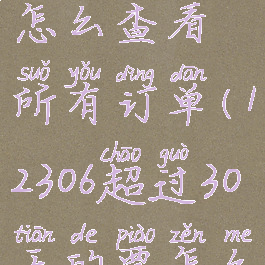 怎么查看
suǒ yǒu dìng dān
所有订单(1
chāo guò
2306超过30
tiān de piào zěn me
天的票怎么